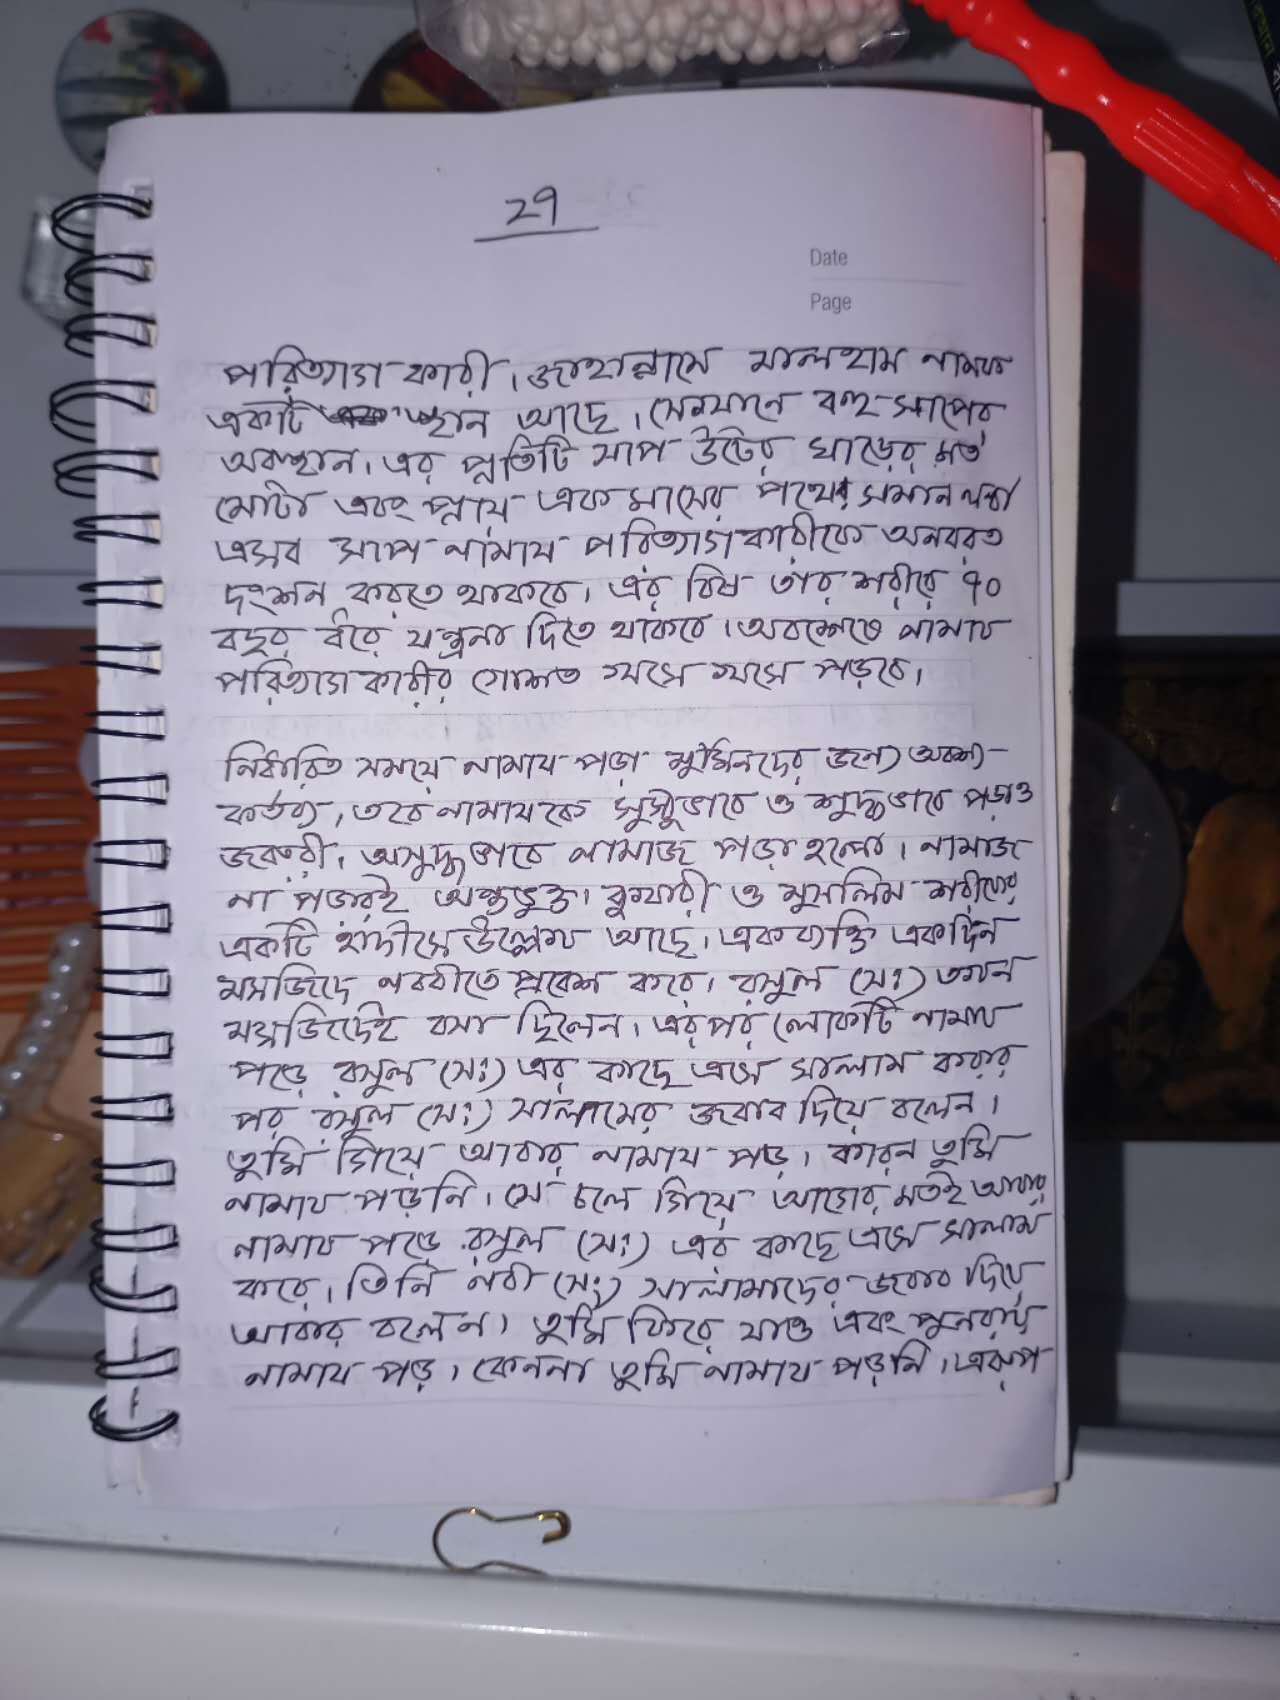 ২৭
Date
Page
পরিত্যাগ কারী। জাহান্নামে মালহাম নামক
একটি স্থান আছে। সেখানে বহু সাপের
অবস্থান। এর প্রতিটি সাপ উটের ঘাড়ের মত
মোটা এবং প্রায় এক মাসের পথের সমান লম্বা
এসব সাপ নামায পরিত্যাগ কারীকে অনবরত
দংশন করতে থাকবে। এর বিষ তার শরীরে ৭০
বছর ধরে যন্ত্রনা দিতে থাকবে। অবশেষে নামায
পরিত্যাগ কারীর গোশত খসে খসে পড়বে।
নির্ধারিত সময়ে নামায পড়া মুমিনদের জন্য অবশ্য
কর্তব্য, তবে নামাযকে সুষ্ঠুভাবে ও শুদ্ধভাবে পড়াও
জরুরী। অসুদ্ধভাবে নামাজ পড়া হলো। নামাজ
না পড়ারই অন্তর্ভুক্ত। বুখারী ও মুসলিম শরীফের
একটি হাদীসে উল্লেখ আছে। এক ব্যক্তি একদিন
মসজিদে নববীতে প্রবেশ করে। রসুল (সঃ) তখন
মসজিদেই বসা ছিলেন। এরপর লোকটি নামায
পড়ে রসুল (সঃ) এর কাছে এসে সালাম করার
পর রসুল (সঃ) সালামের জবাব দিয়ে বলেন।
তুমি গিয়ে আবার নামায পড়। কারন তুমি
নামায পড়নি। সে চলে গিয়ে আগের মতই আবার
নামায পড়ে রসুল (সঃ) এর কাছে এসে সালাম
করে। তিনি নবী (সঃ) সালামাদের জবাব দিয়ে
আবার বলেন। তুমি ফিরে যাও এবং পুনরায়
নামায পড়। কেননা তুমি নামায পড়নি। এরূপ